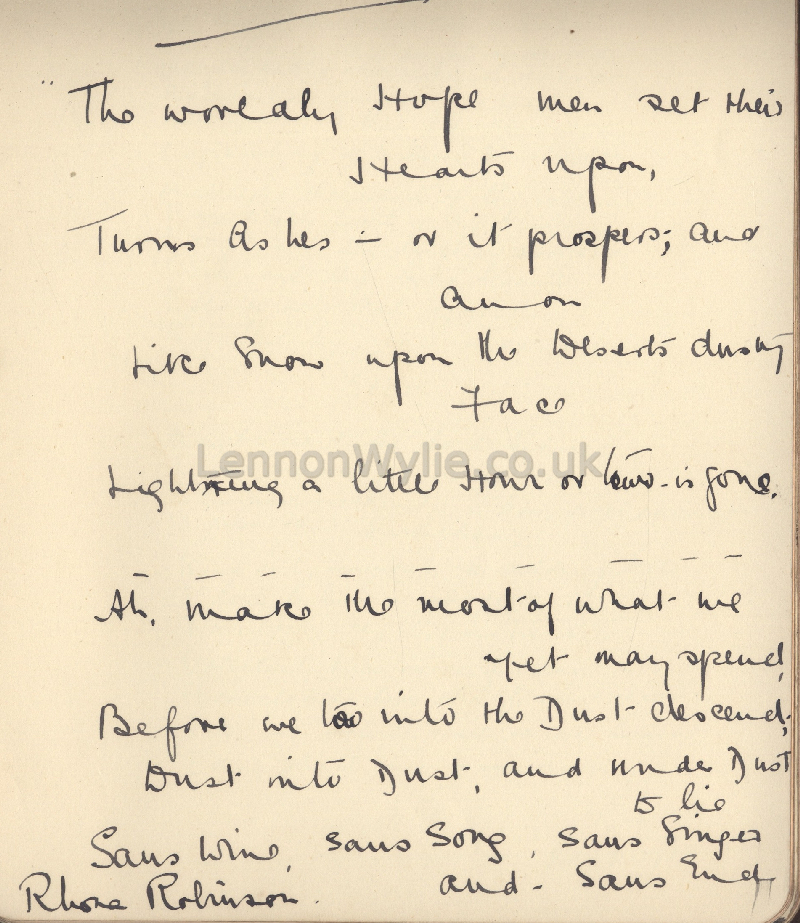 "The worldly Hope men set their
Hearts upon,
Turns Ashes - or it prospers; and
anon
Like Snow upon the Deserts dusty
Face
LennonWylie.co.uk
Lighting a little Hour or two - is gone.
Ah, make the most of what we
yet may spend,
Before we too into the Dust descend;
Dust into Dust, and under Dust
to lie
Sans Wine, sans Song, sans Singer
and - Sans End
Rhona Robinson.